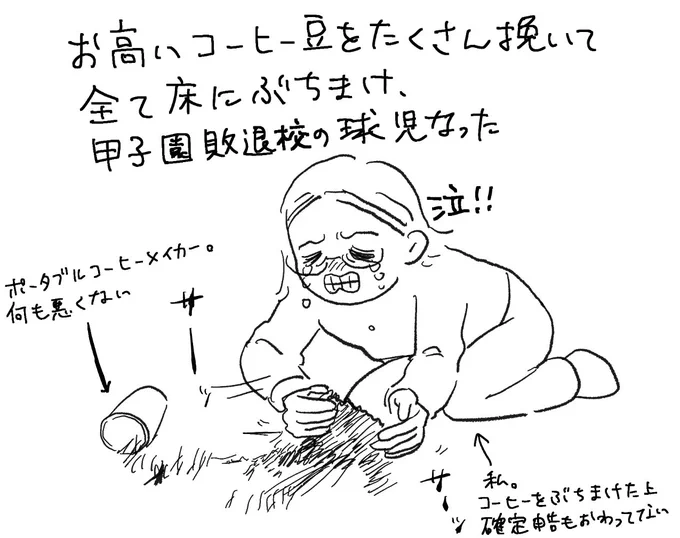 お高いコーヒー豆をたくさん挽いて
全て床にぶちまけ、
甲子園敗退校の球児なった
泣!!
ポータブルコーヒーメイカー。
何も悪くない
サーッ
サーッ
私。
コーヒーをぶちまけた上
確定申告もおわってない